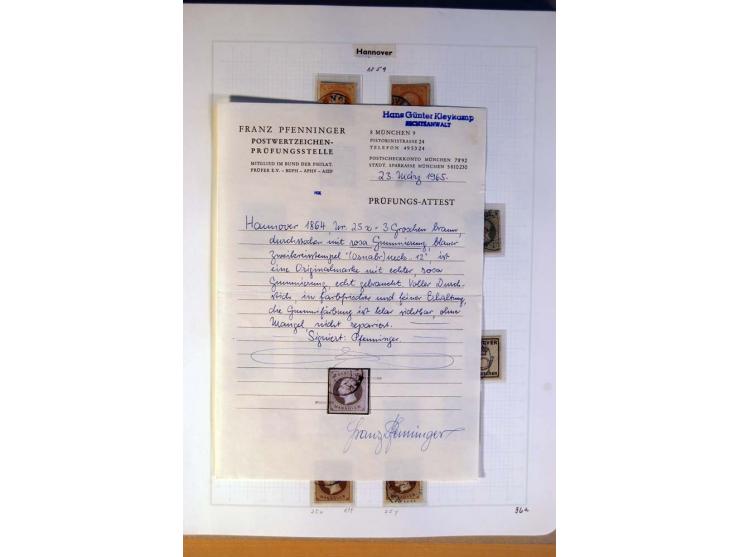 Hannover
1859
Hans Günter Kleykamp
RECHTSANWALT
FRANZ PFENNINGER
POSTWERTZEICHEN-
PRÜFUNGSSTELLE
MITGLIED IM BUND DER PHILAT.
PRÜFER E.V. - BPPH - APHV - AIEP
8 MÜNCHEN 9
PISTORINISTRASSE 24
TELEFON 495324
POSTSCHECKKONTO MÜNCHEN 7892
STÄDT. SPARKASSE MÜNCHEN 5810230
23. März 1965.
PRÜFUNGS-ATTEST
Hannover 1864, Nr. 25x - 3 Groschen braun,
durchstochen mit rosa Gummierung, blauer
Zweikreisstempel "(Osnabr)ueck 12", ist
eine Originalmarke mit echter, rosa
Gummierung, echt gebraucht. Voller Durch-
stich, in farbfrischer und feiner Erhaltung,
die Gummifärbung ist klar sichtbar, ohne
Mängel, nicht repariert.
Signiert: Pfenninger.
HANNOVER
Franz Pfenninger
25x
25y
36a